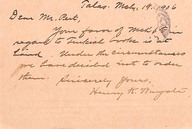 Talas. Mch. 19. 1916
Dear Mr. Peet,
Your favor of Mch
regard to Turkish books is at
hand. Under the circumstances
we have decided not to order
them. Sincerely Yours,
Henry K. Wingate